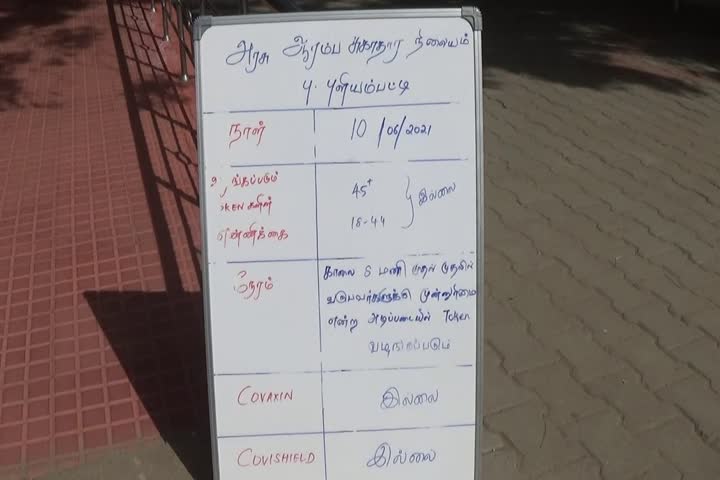 அரசு ஆரம்ப சுகாதார நிலையம்
பு. புளியம்பட்டி
நாள் 10/06/2021
வழங்கப்படும்
Token களின்
எண்ணிக்கை
45+
18-44
இல்லை
நேரம்
காலை 8 மணி முதல் முதலில்
வருபவர்களுக்கு முன்னுரிமை
என்ற அடிப்படையில் Token
வழங்கப்படும்
COVAXIN இல்லை
COVISHIELD இல்லை